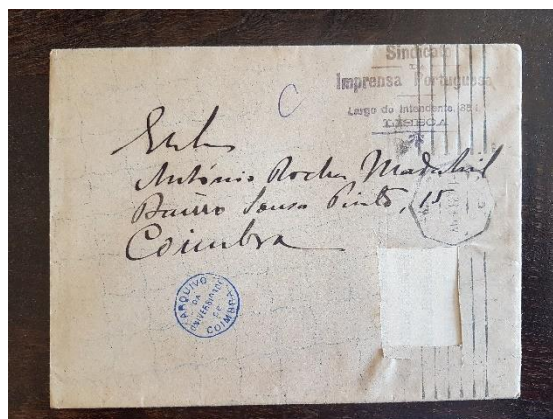 Sindicato
DA
Imprensa Portuguesa
Largo do Intendente,
LISBOA
C
António Rocha Madahil
Bairro Sousa Pinto, 15
Coimbra
ARQUIVO
DA
UNIVERSIDADE
DE
COIMBRA